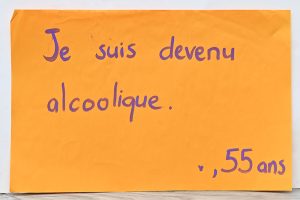 Je suis devenu
alcoolique.
., 55 ans